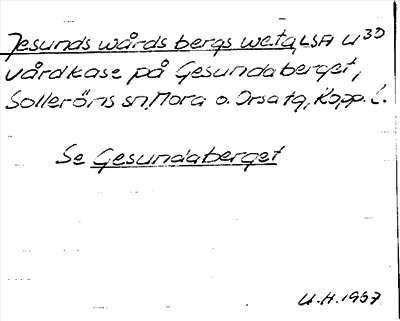 Jesunds wårds bergs we.tq, LSA U 30
vårdkase på Gesundaberget,
Solleröns sn, Mora o. Orsa tg, Kopp. l.
Se Gesundaberget
U.H. 1957